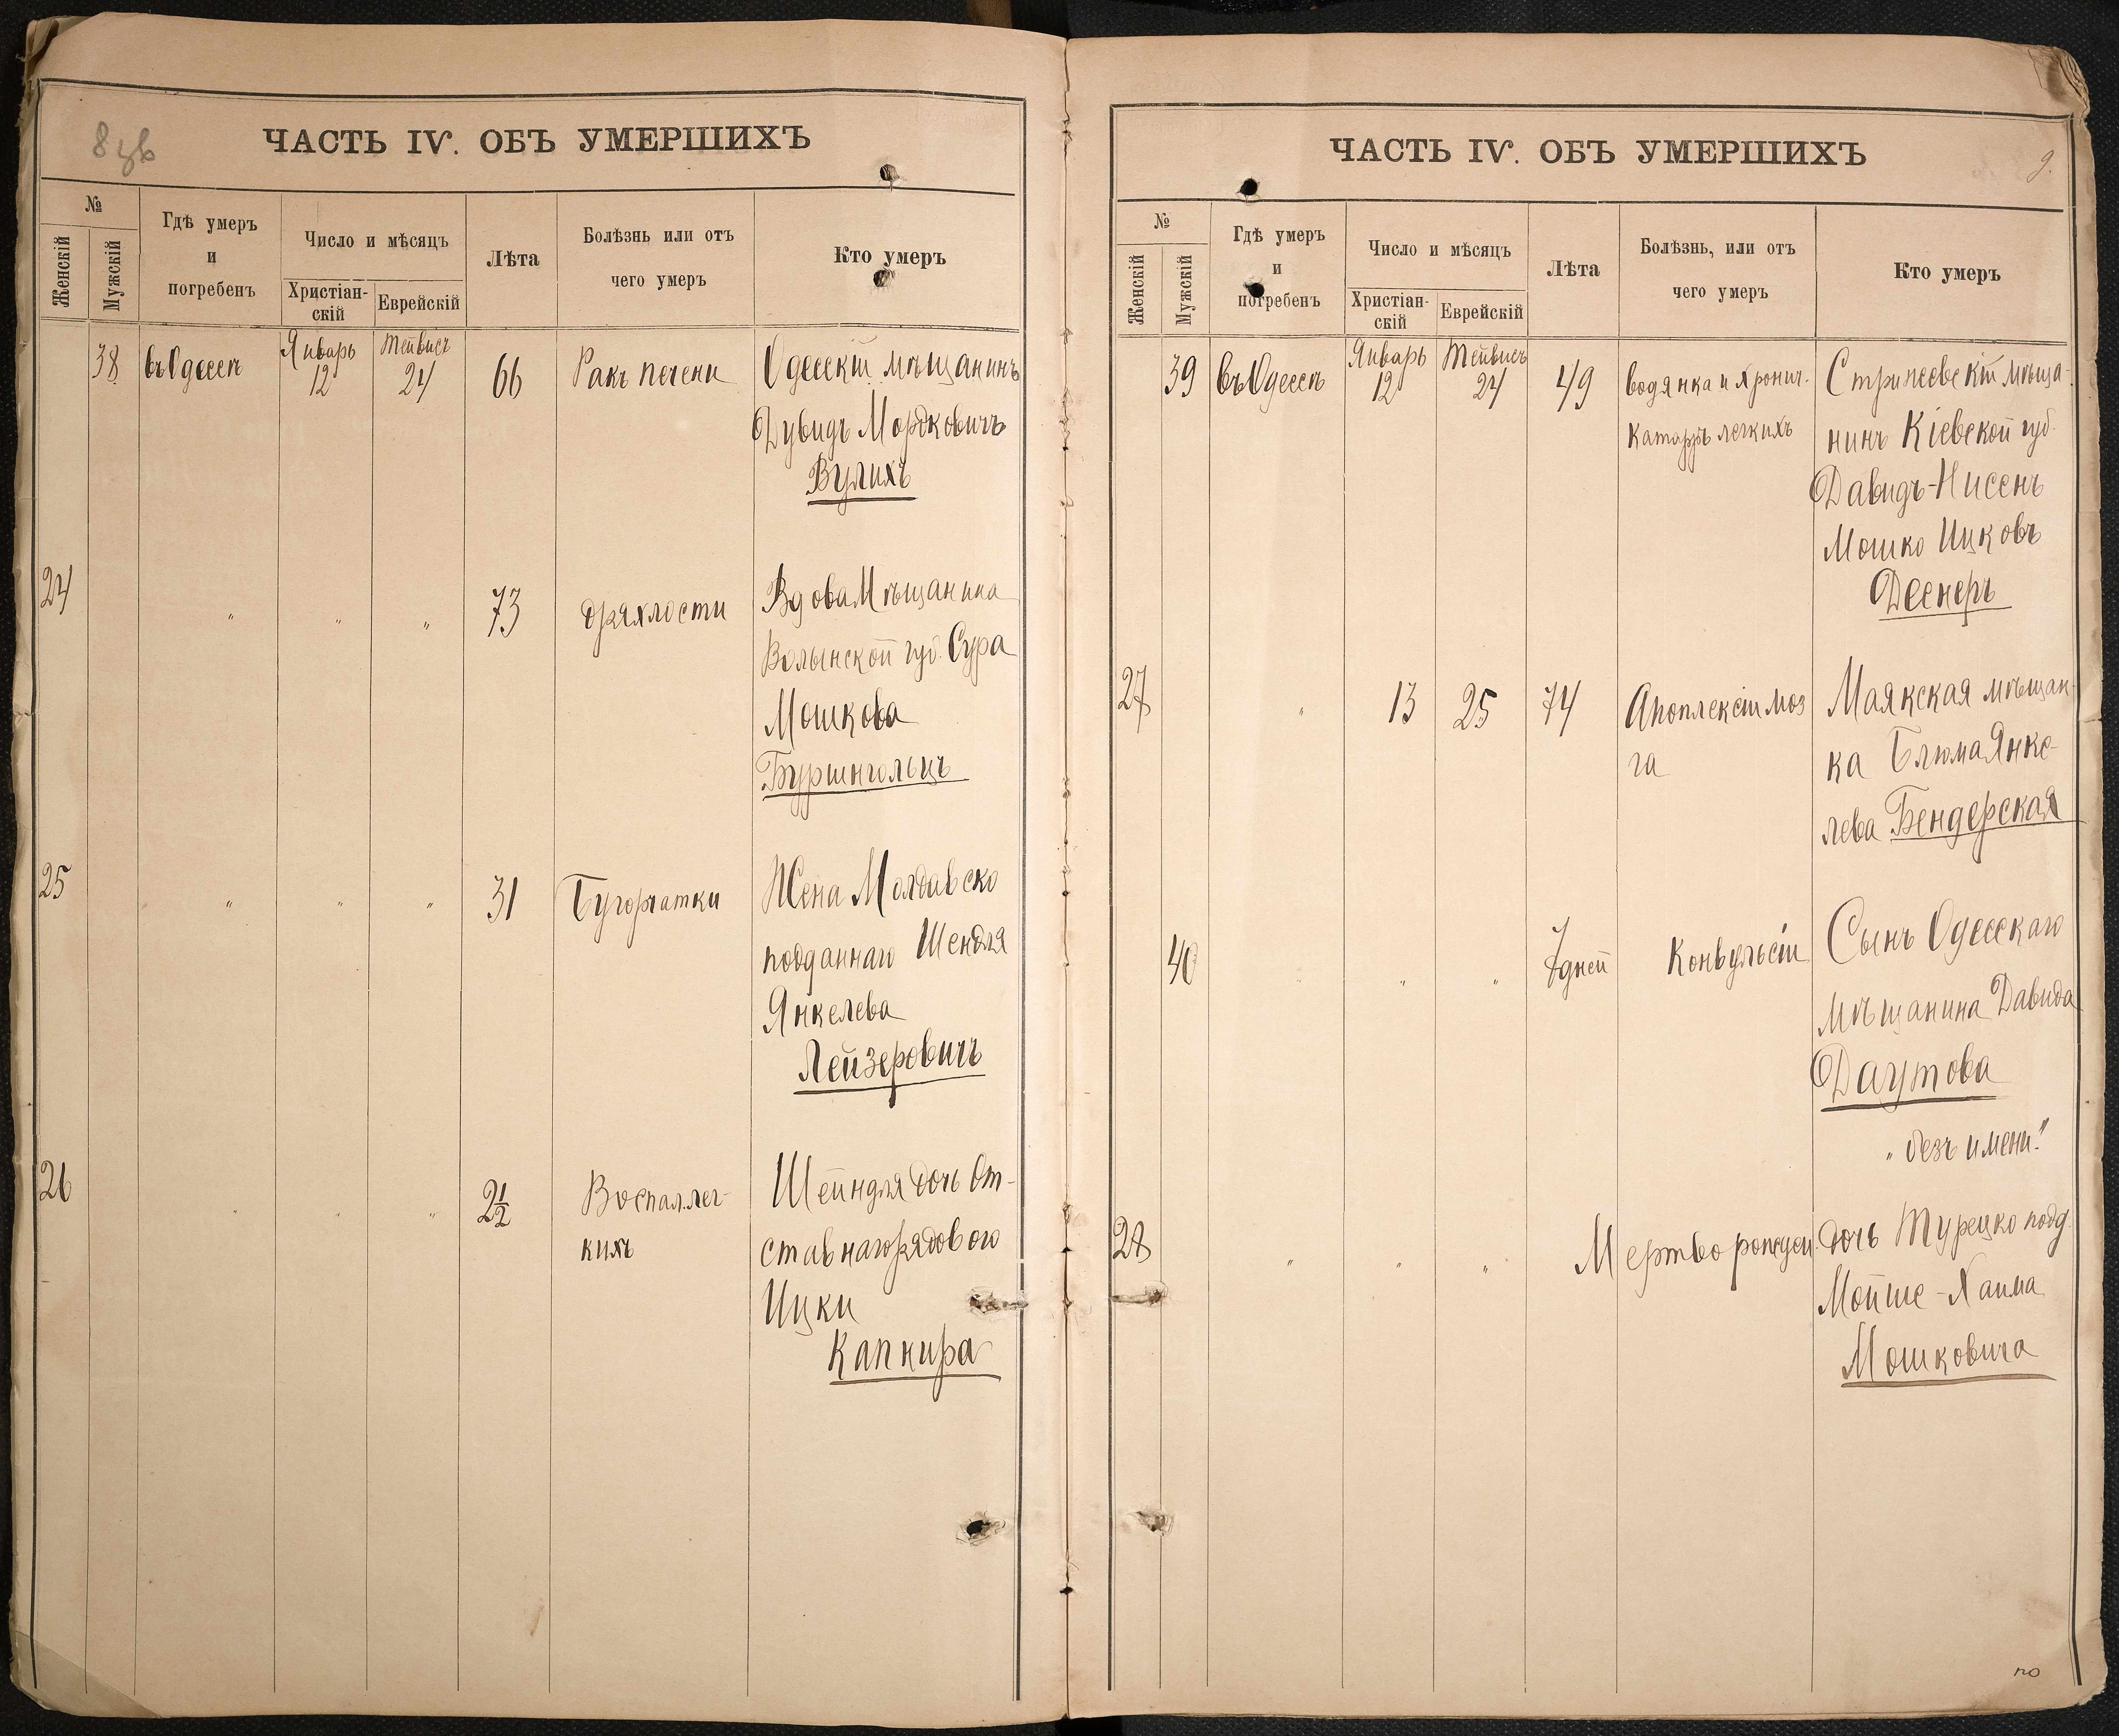 8 зв
ЧАСТЬ IV. ОБЪ УМЕРШИХЪ
№
Женскій
Мужскій
Гдѣ умеръ
и
погребенъ
Число и мѣсяцъ
Христіан-
скій
Еврейскій
Лѣта
Болѣзнь или отъ
чего умеръ
Кто умеръ
38 въ Одессѣ Январь 12 Тейвисъ 24 66 Ракъ печени Одесскій мѣщанинъ
Дувидъ Мордковичъ
Вулихъ
24 " " " 73 дряхлости Вдова Мѣщанина
Волынской губ. Сура
Мошкова
Бурштнгольцъ
25 " " " 31 Бугорчатки Жена Молдавско
подданнаго Шендля
Янкелева
Лейзеровичъ
26 " " " 2½ Воспал. лег- Шейндля дочь От-
кихъ ставнаго рядового
Ицки
Капнира
ЧАСТЬ IV. ОБЪ УМЕРШИХЪ
9.
№
Женскій
Мужскій
Гдѣ умеръ
и
погребенъ
Число и мѣсяцъ
Христіан-
скій
Еврейскій
Лѣта
Болѣзнь, или отъ
чего умеръ
Кто умеръ
39 въ Одессѣ Январь 12 Тейвисъ 24 49 водянка и хронич. Стрижевскій мѣща-
Катарръ легкихъ нинъ Кіевской губ.
Давидъ-Нисенъ
Мошко Ицковъ
Деснеръ
27 " 13 25 74 Апоплексіи моз Маякская мѣщан-
га ка Блюма Янке-
лева Бендерская
40 " " " 7 дней Конвульсіи Сынъ Одесскаго
мѣщанина Давида
Даутова
"безъ имени"
28 " " " Мертворожден. дочь Турецко подд.
Мойше-Хаима
Мошковича
по